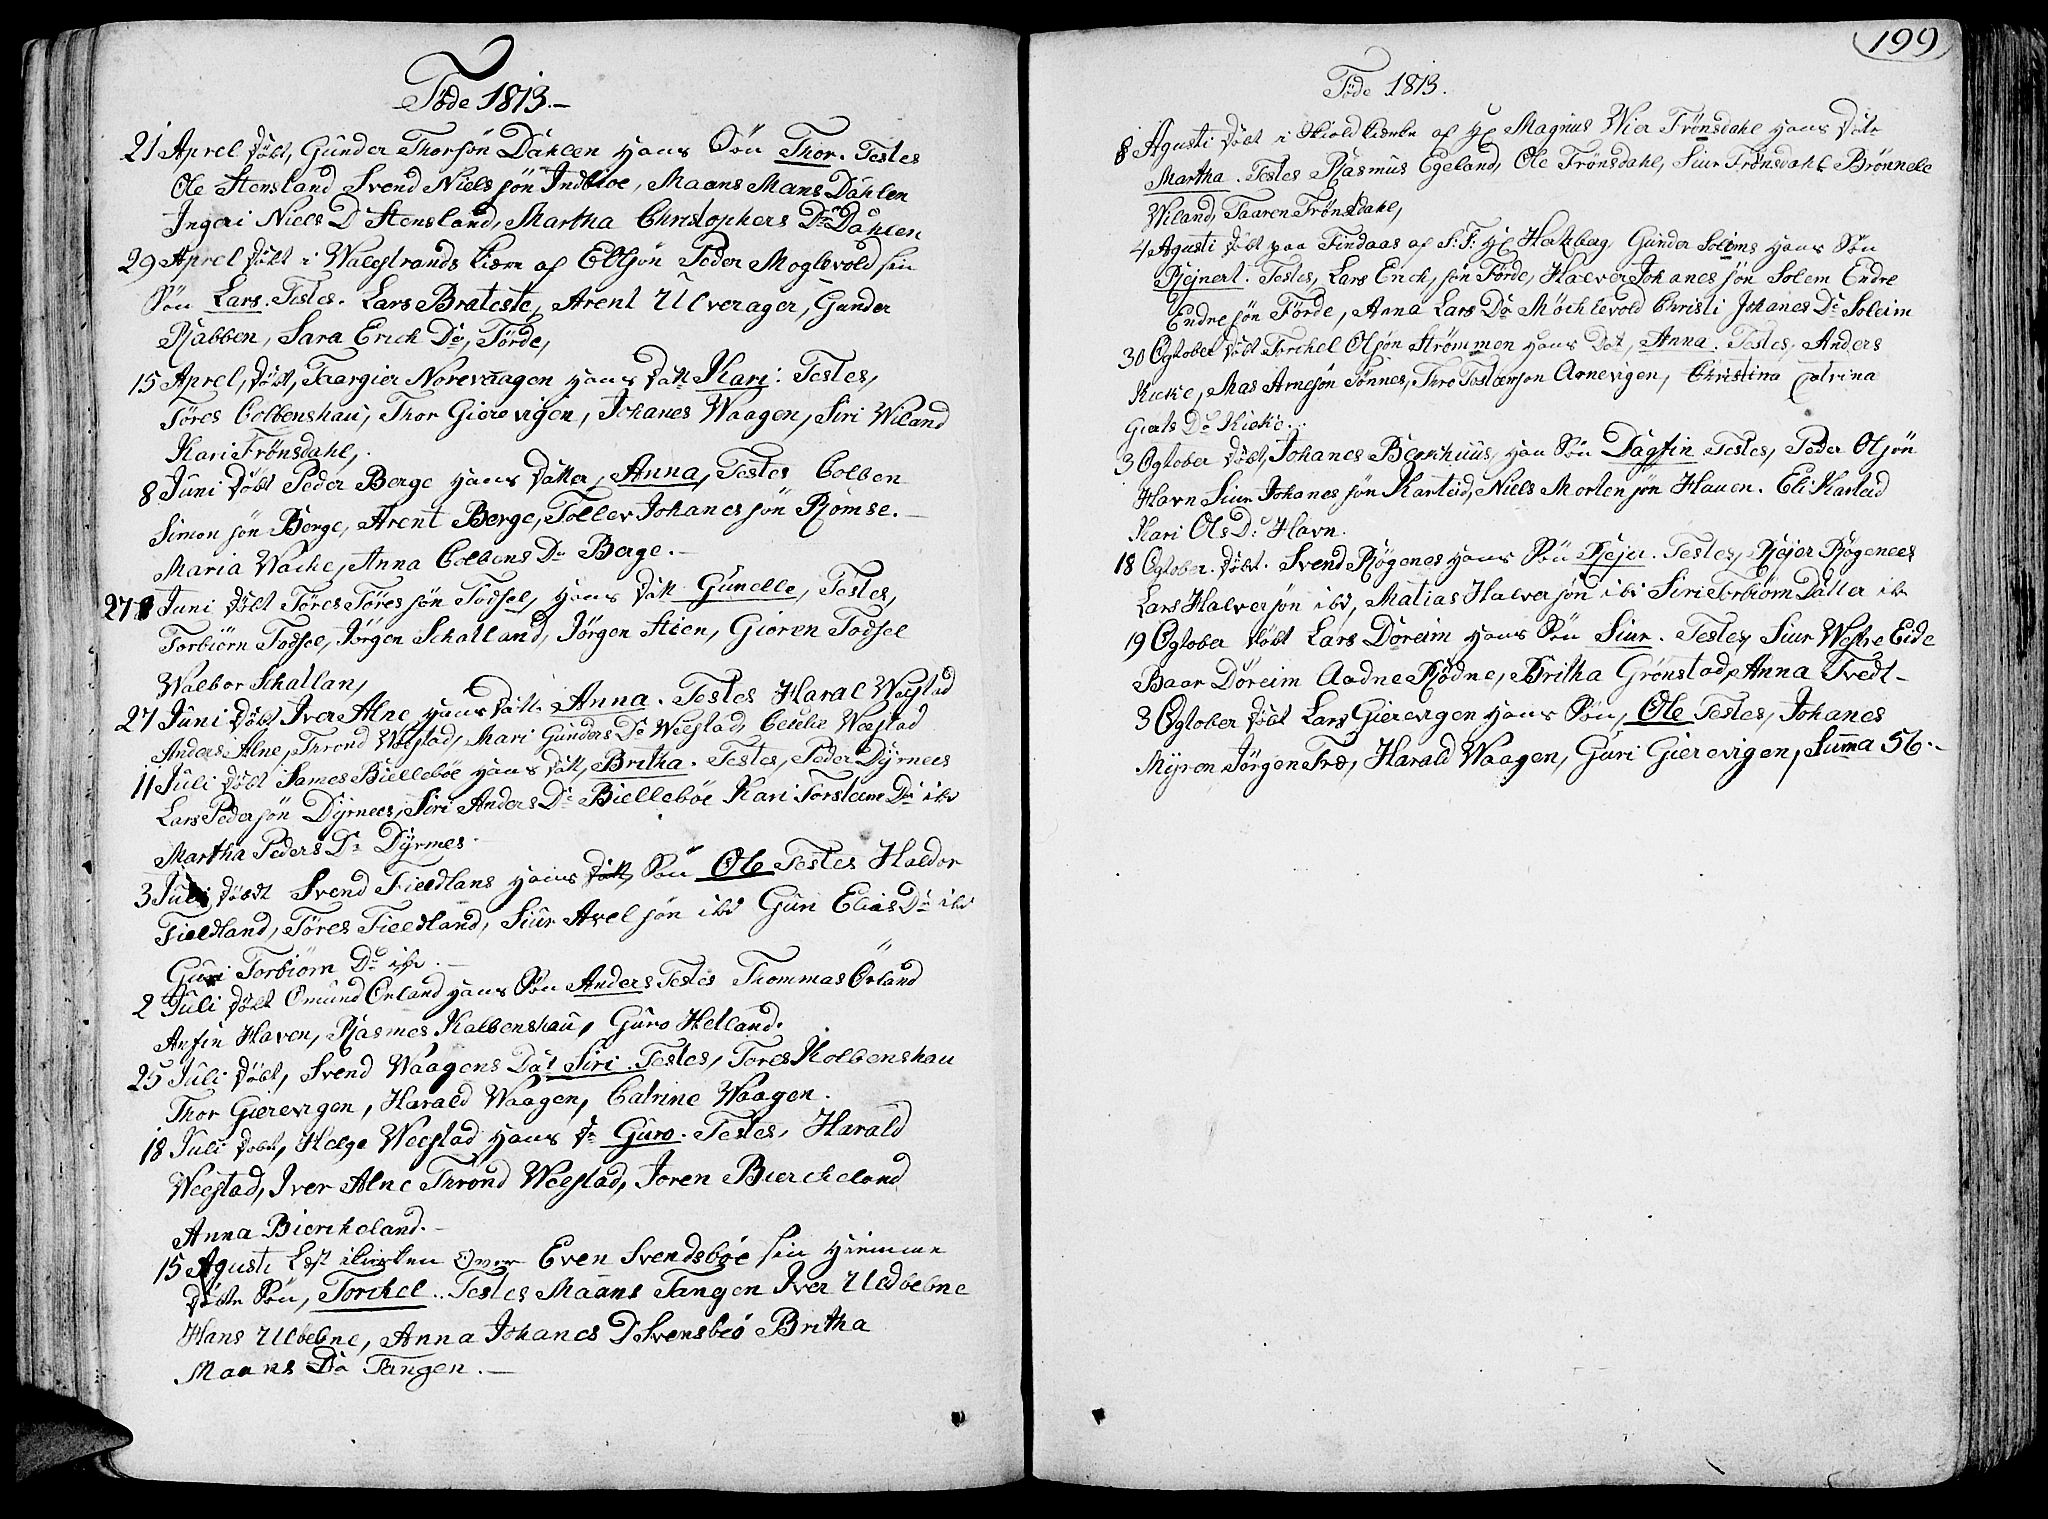 Föde 1813.
21 Aprel döbt, Gunder Thorsön Dahlen hans Sön Thor. Testes
Ole Stensland Svend Niels sön Indbioe, Maans Mans Dahlen
Ingeri Niels D Stensland, Martha Christophers Dr Dahlen
29 Aprel döbt i Walestrands kirke af Eltsön Peder Moglevold sin
Sön Lars. Testes. Lars Brateste, Arent Ulverager, Gunder
Rabben, Sara Erich Dr, Förde,
15 Aprel, döbt, Taargier Norevaagen hans datt Kari. Testes,
Töres Colbenshau, Thor Gierevigen, Johanes Waagen, Siri Wiland
Kari Frönsdahl,
8 Juni döbt Peder Berge hans datter, Anna, Testes Colben
Simon sön Berge, Arent Berge, Tollev Johanes sön Römse.
Maria Wacke, Anna Colbens Dr Berge.
27 Juni döbt Töres Töres sön Todsel, hans datt Gunelle, Testes,
Torbiörn Todsel, Jörgen Schalland, Jörgen Stien, Giören Todsel
Walbor Schallan,
27 Juni döbt Iver Alne hans datt. Anna. Testes Haral Weestad
Anders Alne, Thrond Weestad, Mari Gunders Dr Weestad, Cecelie Weestad
11 Juli döbt Sames Bielleböe hans datt, Britha. Testes, Peder Dyrnees
Lars Peder sön Dyrnees, Siri Anders Dr Bielleböe Kari Torsteim Dr ibd
Martha Peders Dr Dyrnes.
3 Juli döbt Svend Fieldlans hans datt, Sön Ole Testes Haldor
Fieldland, Töres Fieldland, Siur Avel sön ibd Guri Elias Dr ibd
Guri Torbiörn Dr ibd.
2 Juli döbt Omund Orland hans Sön Anders Testes Thommas Örland
Anfin Haven, Rasmes Kalbenshau, Guro Helland.
25 Juli döbt, Svend Waagens Dat Siri. Testes, Tores Kolbenshau
Thor Gierevigen, Harald Waagen, Catrine Waagen.
18 Juli döbt, Helge Weestad hans Dr Guro. Testes, Harald
Weestad, Iver Alne Thrond Weestad, Joren Bierckeland
Anna Bierckeland.
15 Agusti Lest i kirken Over Even Svendsböe sin hiemme
döbte Sön, Torckel. Testes Maans Tangen Iver Uldbebne
Hans Ulbebne, Anna Johanes D Svensbeö Britha
Maans Dr Tangen.
199
Föde 1813.
8 Agusti döbt i Skiold kierke af Hr Magnus Wier Frönsdahl hans Date
Martha. Testes Rasmus Egeland, Ole Frönsdahl, Siur Frönsdahl Brönnele
Wiland, Taaren Frönsdahl,
4 Agusti döbt paa Findaas af S: T: Hr Gunder Solems hans Sön
Rejnert. Testes, Lars Erick sön Förde, Halver Johanes sön Solem Endre
Endre sön Förde, Anna Lars Dr Möcklevold Christi Johanes Dr Soleim
30 Ogtober döbt Torckel Olsön Strömmen hans Dat, Anna. Testes, Anders
Kicke, Mas Arnesön Sönnes, Aanevigen, Christina Catrina
Gierts Dr Kieke.
3 Ogtober döbt, Johanes Beckhuus, han Sön Dagfin Testes, Peder Olsön
Havn Siur Johanes sön Karteid, Niels Morten sön Haven. Eli Karteid
Kari Ols Dr Havn.
18 Ogtober. döbt. Svend Rögenes hans Sön Rejer. Testes, Rejer Rögenees
Lars Halver sön ibd, Matias Halver sön ibd Siri Torbiörn Datter ibd
19 Ogtober döbt Lars Döreim hans Sön Siur. Testes, Siur Westre Eide
Baar Döreim Aadne Rödne, Britha Grönstad, Anna Tvedt
3 Ogtober döbt Lars Gierevigen hans Sön, Ole Testes, Johanes
Myren Jörgen Træ, Harald Waagen, Guri Gierevigen, Summa 56.